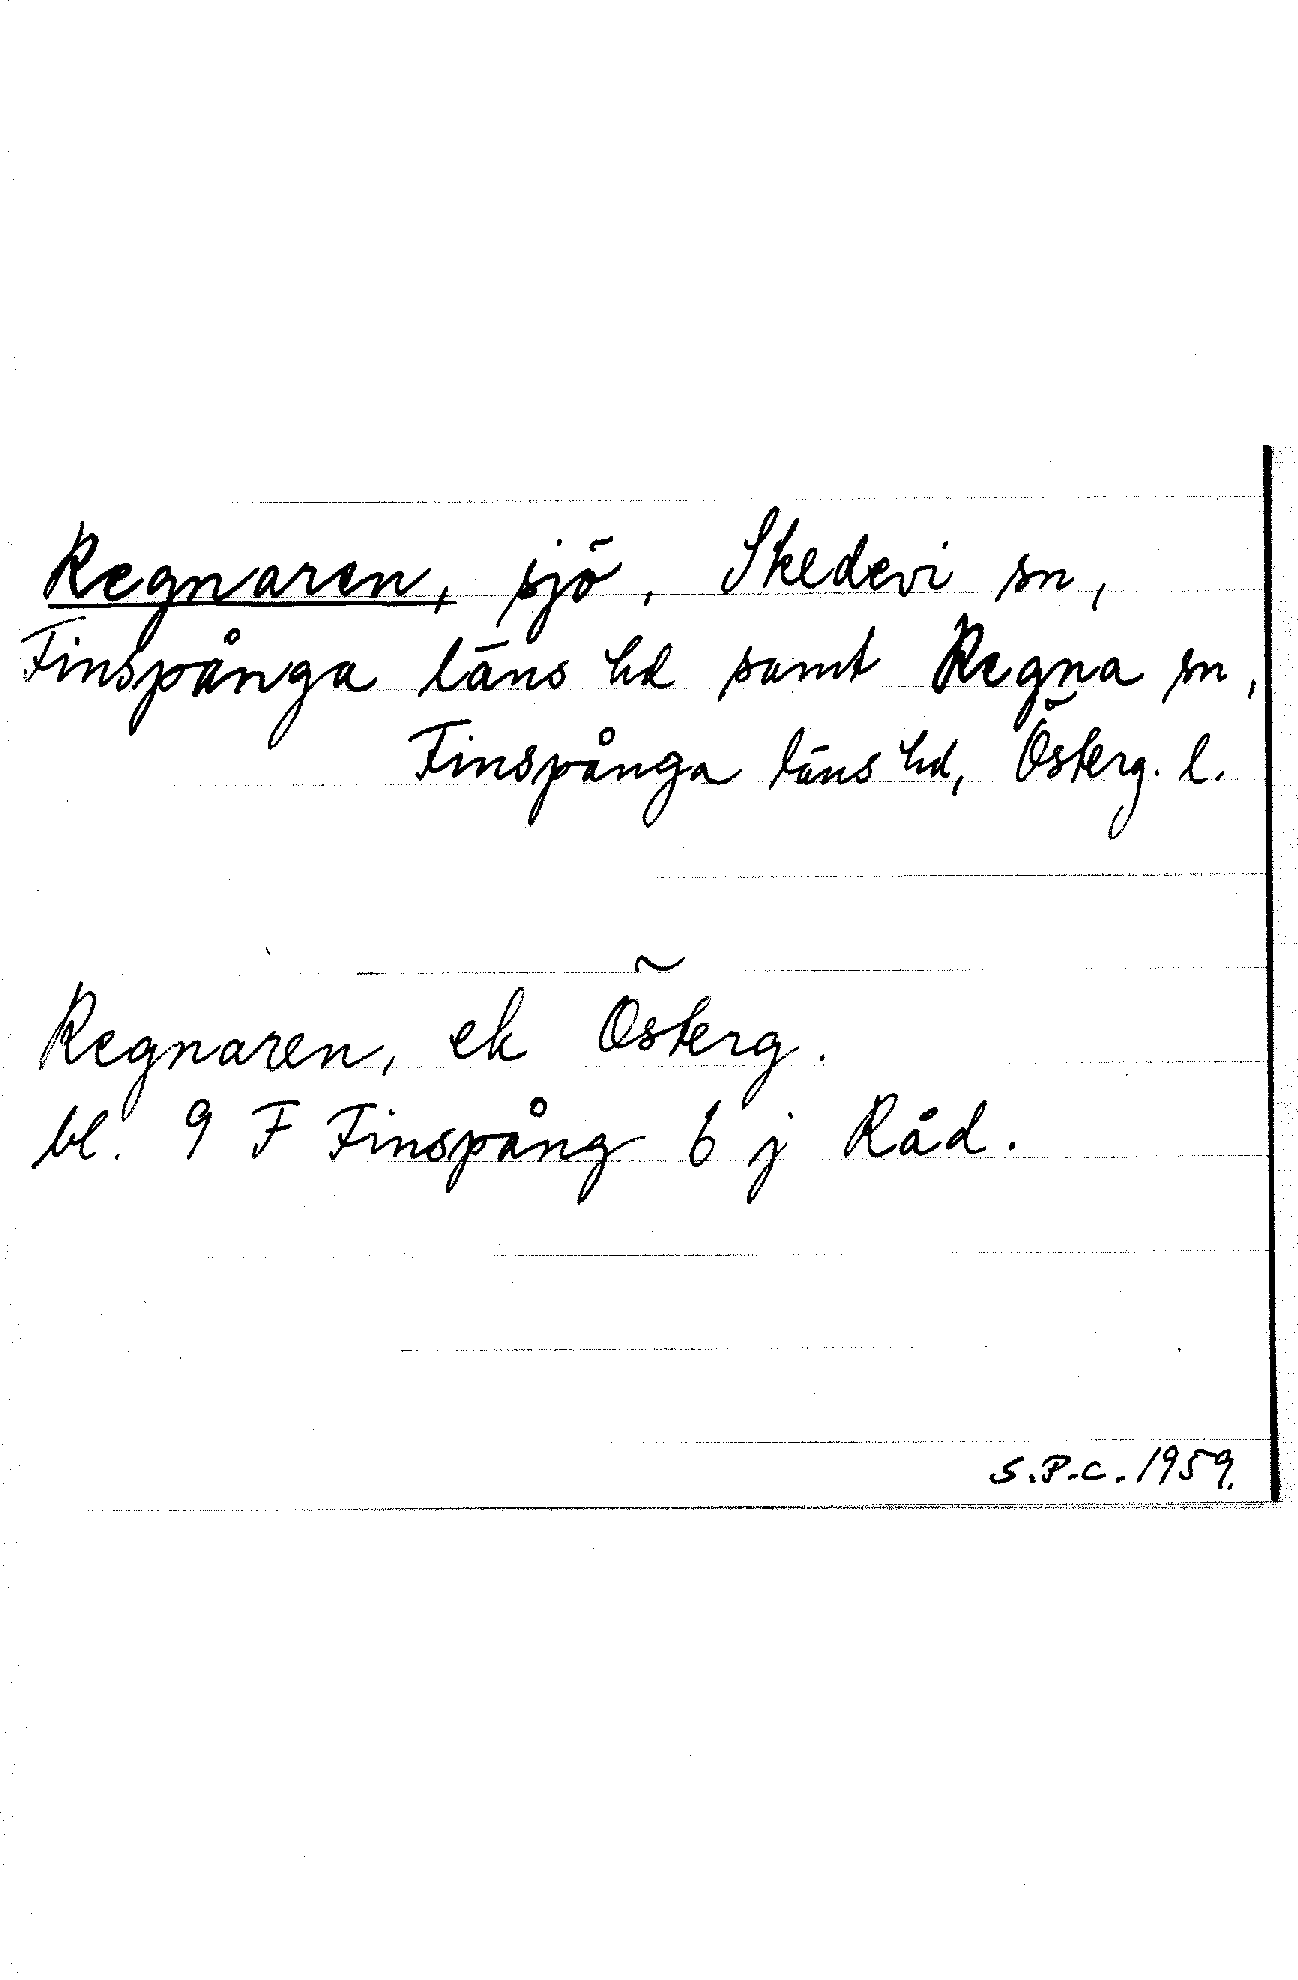 Regnaren, sjö, Skedevi sn,
Finspånga läns hd samt Regna sn,
Finspånga läns hd, Österg. l.
Regnaren, ek Österg.
bl. 9 F Finspång 6 j Råd.
S.P.C. 1959.